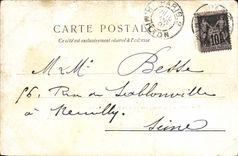 CARTE POSTALE
Ce côté est exclusivement réservé à l'adresse
10
M. M. Besse
56, Rue de Sablonville
à Neuilly.
Seine